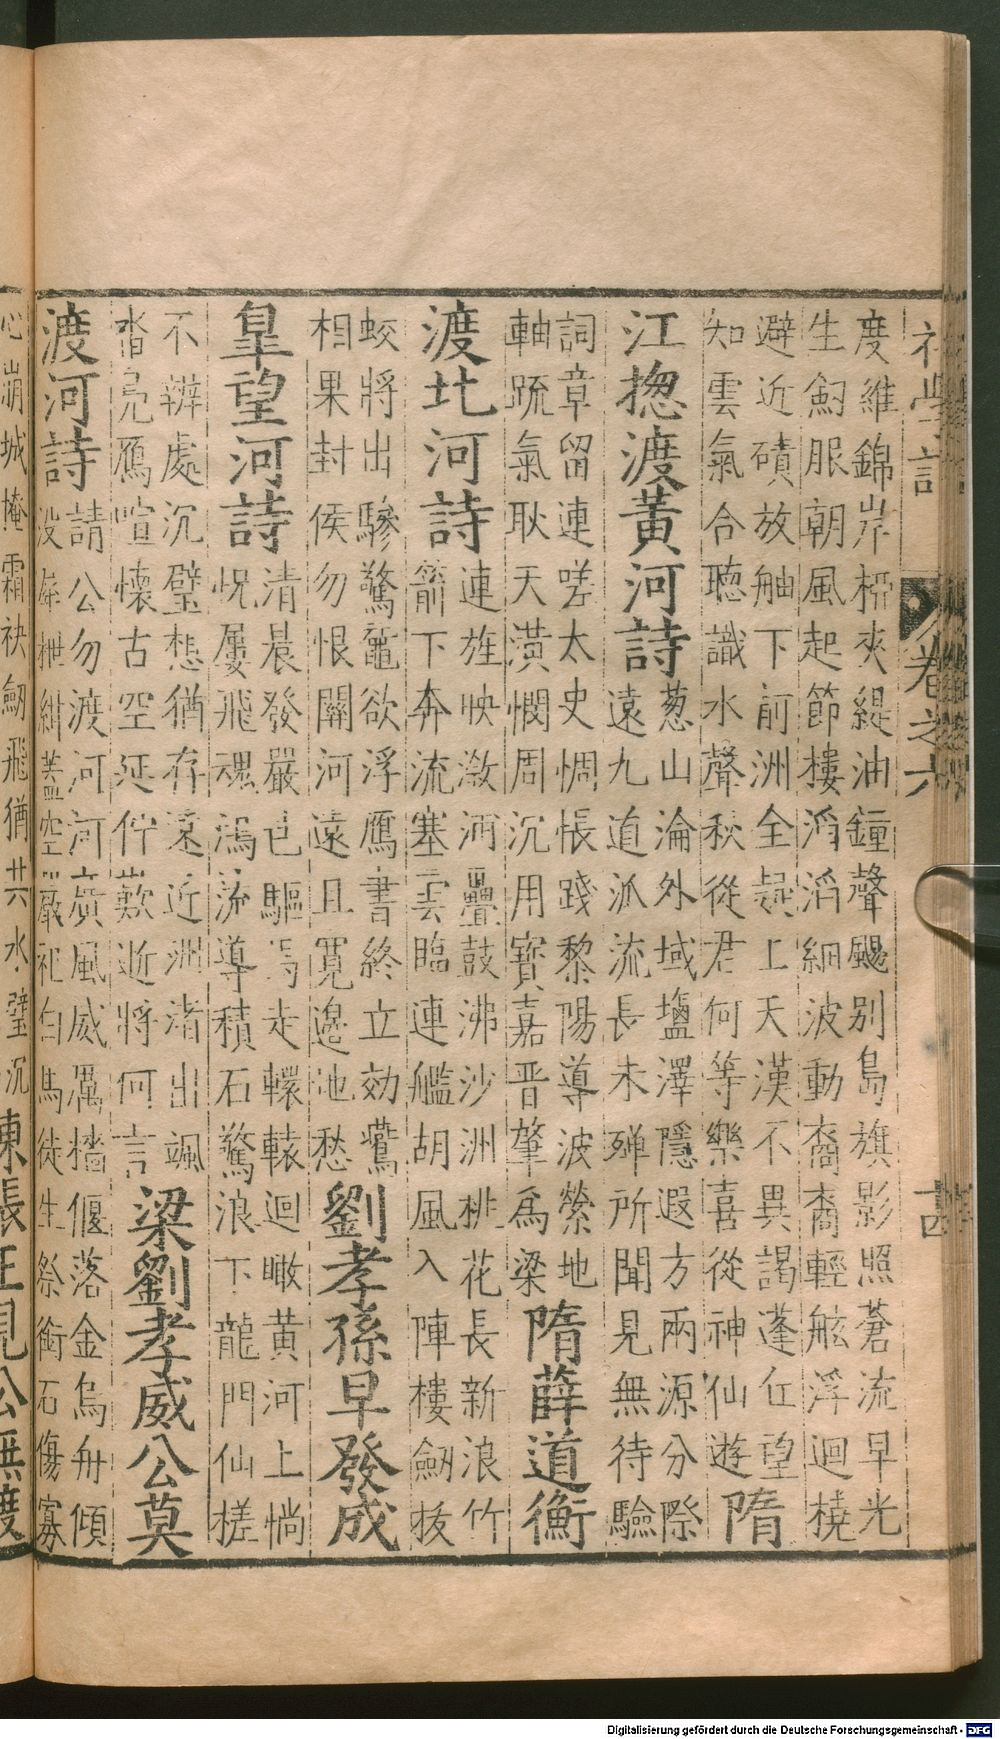 初學記 卷之六 十四
度維錦岸柳夾緹油鐘聲颺别島旗影照蒼流早光
生劒服朝風起節樓滔滔細波動裔裔輕舷浮迴橈
避近磧放舳下前洲全疑上天漢不異謁蓬丘望
知雲氣合聴識水聲秋從君何等樂喜從神仙遊
隋
江揔渡黃河詩
葱山淪外域鹽澤隱遐方兩源分際
遠九道泒流長未殫所聞見無待驗
詞章留連嗟太史惆悵踐黎陽導波縈地
軸䟽氣耿天潢憫周沉用寳嘉晋肇為梁
隋薛道衡
渡北河詩
連旌映潋浦疊鼓沸沙洲桃花長新浪竹
箭下奔流塞雲臨連艦胡風入陣樓劔拔
蛟將出驂驚黿欲浮鴈書終立効鷰
相果封侯勿恨關河遠且寛邉地愁
劉孝孫早發成
皐望河詩
清晨發巖邑驅馬走轘轅迴瞰黄河上惝
怳屢飛魂鴻流導積石驚浪下龍門仙槎
不辨處沉璧想猶存遠近洲渚出颯
沓鳧鴈喧懷古空延佇歎逝將何言
梁劉孝威公莫
渡河詩
請公勿渡河河廣風威厲檣偃落金烏舟傾
没犀枻紺葢空嚴祀白馬徒生祭銜石傷寡
心崩城掩霜袂劒飛猶共水璧沉
陳張正見公無渡
Digitalisierung gefördert durch die Deutsche Forschungsgemeinschaft - DFG